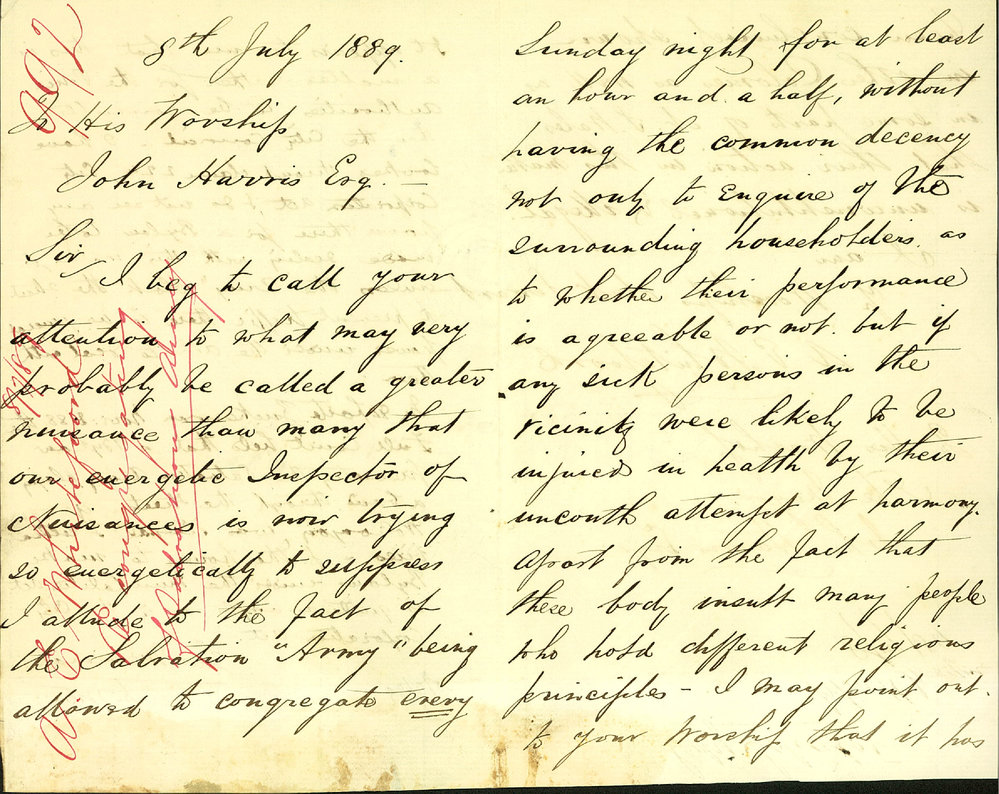 8th July 1889.
To His Worship
John Harris Esq. —
Sir
I beg to call your
attention to what may very
probably be called a greater
nuisance than many that
our energetic Inspector of
Nuisances is now trying
so energetically to suppress
I allude to the fact of
the Salvation "Army" being
allowed to congregate every
Sunday night for at least
an hour and a half, without
having the common decency
not only to Enquire of the
surrounding householders as
to whether their performance
is agreeable or not. but if
any sick persons in the
vicinity were likely to be
injured in health by their
uncouth attempt at harmony.
Apart from the fact that
these body insult many people
who hold different religious
principles - I may point out.
to your Worship that it has
992
A C Whiteford
Re congregating
of Salvation Army